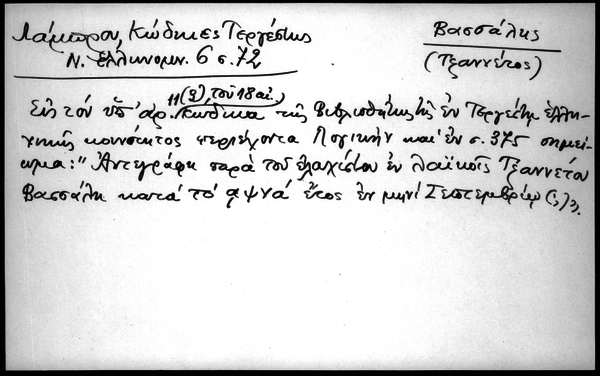 Λάμπρου, Κώδικες Τεργέστης
Ν. Ἑλληνομν. 6 σ. 72
Βασσάλης
(Τζαννέτος)
Εἰς τόν ὑπ' ἀρ. 11 (τοῦ 18 αἰ.) κώδικα τῆς Βιβλιοθήκης τῆς ἐν Τεργέστῃ ἑλλη-
νικῆς κοινότητος περιέχοντα Λογικήν καί ἐν σ. 375 σημεί-
ωμα: "Ἀντεγράφη παρά τοῦ ἐλαχίστου ἐν λαϊκοῖς Τζαννέτου
Βασσάλη κατά τό αψνά ἔτος ἐν μηνί Σεπτεμβρίῳ (;)".